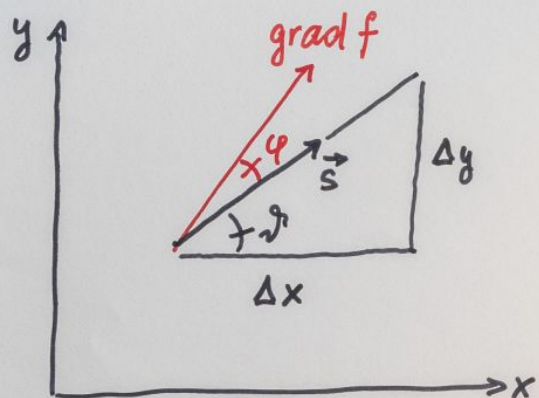 y
grad f
φ
s
Δy
ϑ
Δx
x